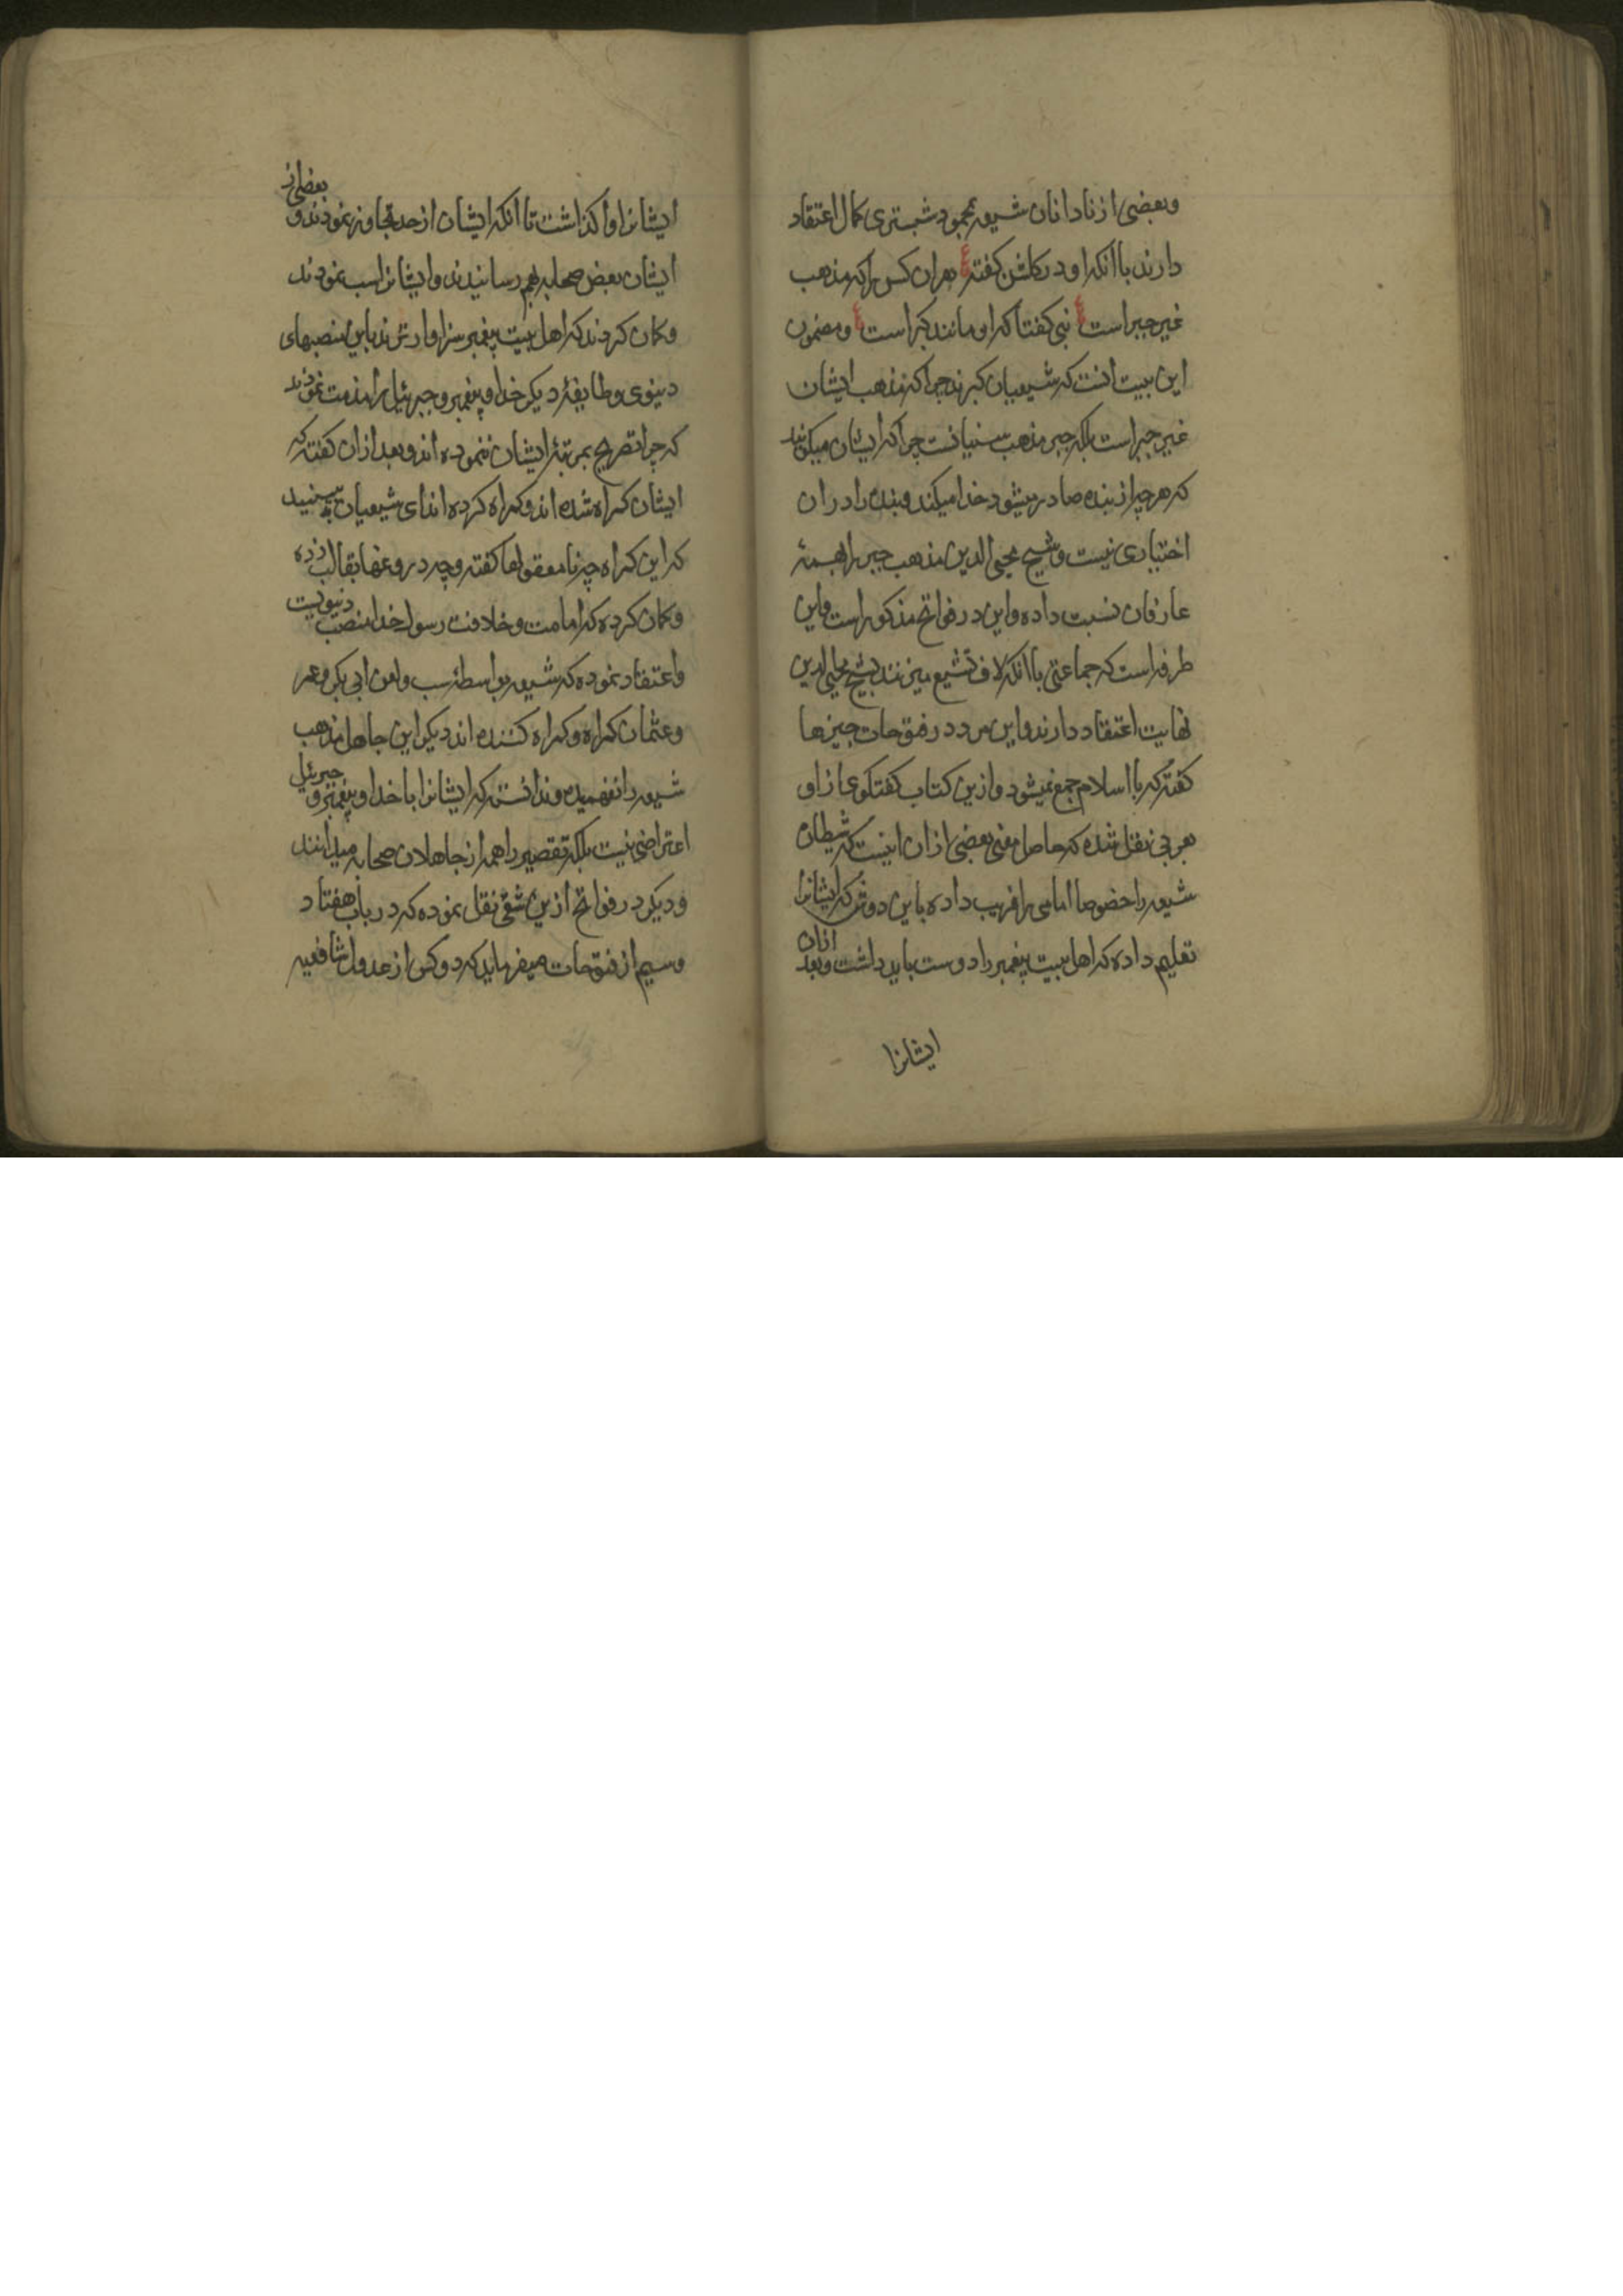 وبعضی از نادانان شیعه بمحمود شبتری کمال اعتقاد
دارند با آنکه او در کلشن کفته ع هران کس را که مذهب
غیر جبر است ع نبی کفتا که او مانند کبر است ع ومضمون
این بیت انست که شیعیان کبرند چرا که مذهب ایشان
غیر جبر است بلکه جبر مذهب سنیانست چرا که ایشان میکویند
که هر چه از بنده صادر میشود خدا میکند وبنده را در ان
اختیاری نیست وشیخ محیی الدین مذهب جبر را بهمهٔ
عارفان نسبت داده واین در فواتح مذکور است واین
طرفه است که جماعتی با آنکه لاف تشیع میزنند بشیخ محیی الدین
نهایت اعتقاد دارند واین مرد در فتوحات چیزها
کفته که با اسلام جمع نمیشود وازین کتاب کفتکوی از او
بعربی نقل شده که حاصل معنی بعضی از ان اینست که شیطان
شیعه را خصوصا امامی را فریب داده باین روش که ایشانرا
تعلیم داده که اهل بیت پیغمبر را دوست باید داشت وبعد ازان
ایشانرا
ایشانرا واکذاشت تا آنکه ایشان از حد تجاوز نمودند وبعضی از
ایشان بغض صحابه بهم رسانیدند وایشانرا سب نمودند
وکمان کردند که اهل بیت پیغمبر سزاوارترند باین منصبهای
دنیوی وطایفهٔ دیکر خدا وپیغمبر وجبرئیل را مذمت نمودند
که چرا تصریح بمرتبهٔ ایشان ننموده اند وبعد از ان کفته که
ایشان کمراه شده اند وکمراه کرده اند ای شیعیان ببینید
که این کمراه چه نامعقولها کفته وچه دروغها بقالب زده
وکمان کرده که امامت وخلافت رسول خدا منصب دنیویست
واعتقاد نموده که شیعه بواسطهٔ سب ولعن ابی بکر وعمر
وعثمان کمراه وکمراه کننده اند دیکر این جاهل مذهب
شیعه را نفهمیده وندانسته که ایشانرا با خدا وپیغمبر وجبرئیل
اعتراضی نیست بلکه تقصیر را همه از جاهلان صحابه میدانند
ودیکر در فواتح ازین شقی نقل نموده که در باب هفتاد
وسیم از فتوحات میفرماید که دو کس از عدول شافعیه